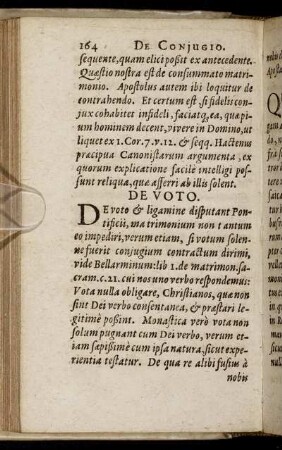 164 DE CONJUGIO.
sequente, quam elici poßit ex antecedente.
Quæstio nostra est de consummato matri-
monio. Apostolus autem ibi loquitur de
contrahendo. Et certum est, si fidelis con-
jux cohabitet infideli, faciatq́, ea, quæ pi-
um hominem decent, vivere in Domino, ut
liquet ex 1. Cor. 7. v. 12. & seqq. Hactenus
præcipua Canonistarum argumenta, ex
quorum explicatione facile intelligi pos-
sunt reliqua, quæ afferri ab illis solent.
DE VOTO.
DE voto & ligamine disputant Pon-
tificii, matrimonium non tantum
eo impediri, verum etiam, si votum solen-
ne fuerit conjugium contractum dirimi,
vide Bellarminum: lib 1. de matrimon. sa-
cram. c. 21. cui nos uno verbo respondemus:
Vota nulla obligare, Christianos, quæ non
sint Dei verbo consentanea, & præstari le-
gitimè poßint. Monastica verò vota non
solum pugnant cum Dei verbo, verum et-
iam sæpißimè cum ipsa natura, sicut expe-
rientia testatur. De qua re alibi fusius à
nobis